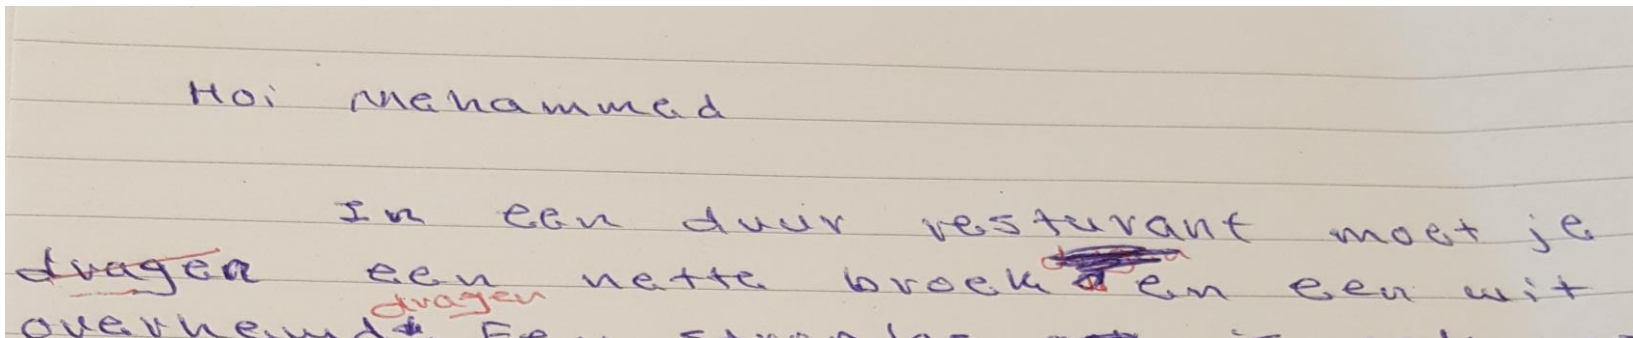 Hoi Mehammed
In een duur resturant moet je
dragen een nette broek en een wit
dragen
overhemd. Een